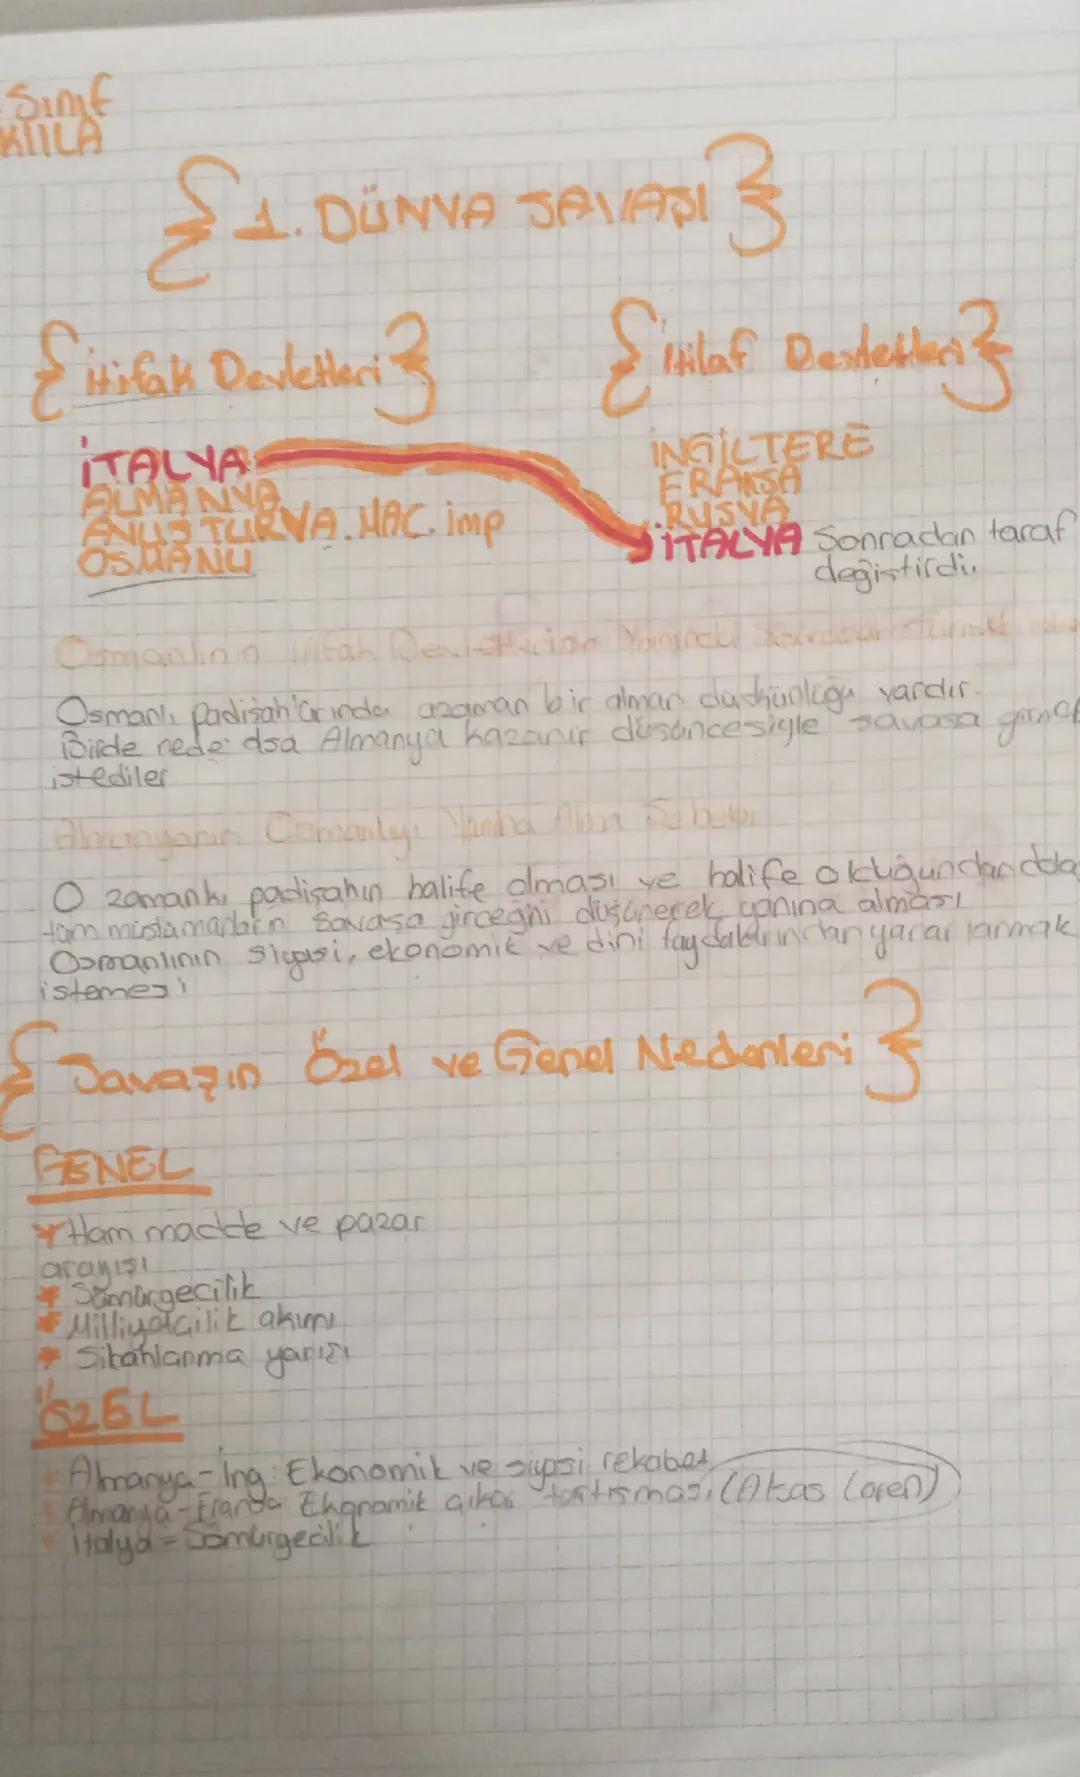 Sınıf
{1. DÜNYA SAVAŞI}
{İttifak Devletleri}
{İtilaf Devletleri}
İTALYA
ALMANYA
AVUSTURYA.MAC.imp
OSMANLI
İNGİLTERE
FRANSA
RUSYA
İTALYA Sonradan taraf
değiştirdi.
Osmanlının ittifak Devletlerinin Yanında
Osmanlı padişah'larında azaman bir alman düşkünlüğü vardır.
Birde nede olsa Almanya kazanır düşüncesiyle savaşa girmek
istediler
Almanyanın Osmanlıyı Yanına Alma Sebebi
O zamankı padişahın halife olması ve halife olduğundan dola
tüm müslamanların savaşa girceğini düşünerek yanına alması
Osmanlının siyasi, ekonomik ve dini faydalarından yararlanmak
istemesi
{Savaşın Özel ve Genel Nedenleri}
GENEL
* Ham madde ve pazar
arayışı
* Sömürgecilik
* Milliyetçilik akımı
* Silahlanma yarışı
ÖZEL
* Almanya-İng: Ekonomik ve siyasi rekabet
* Almanya-Fransa Ekonomik çıkar tartışması (Alsas Loren)
* İtalya-Sömürgecilik